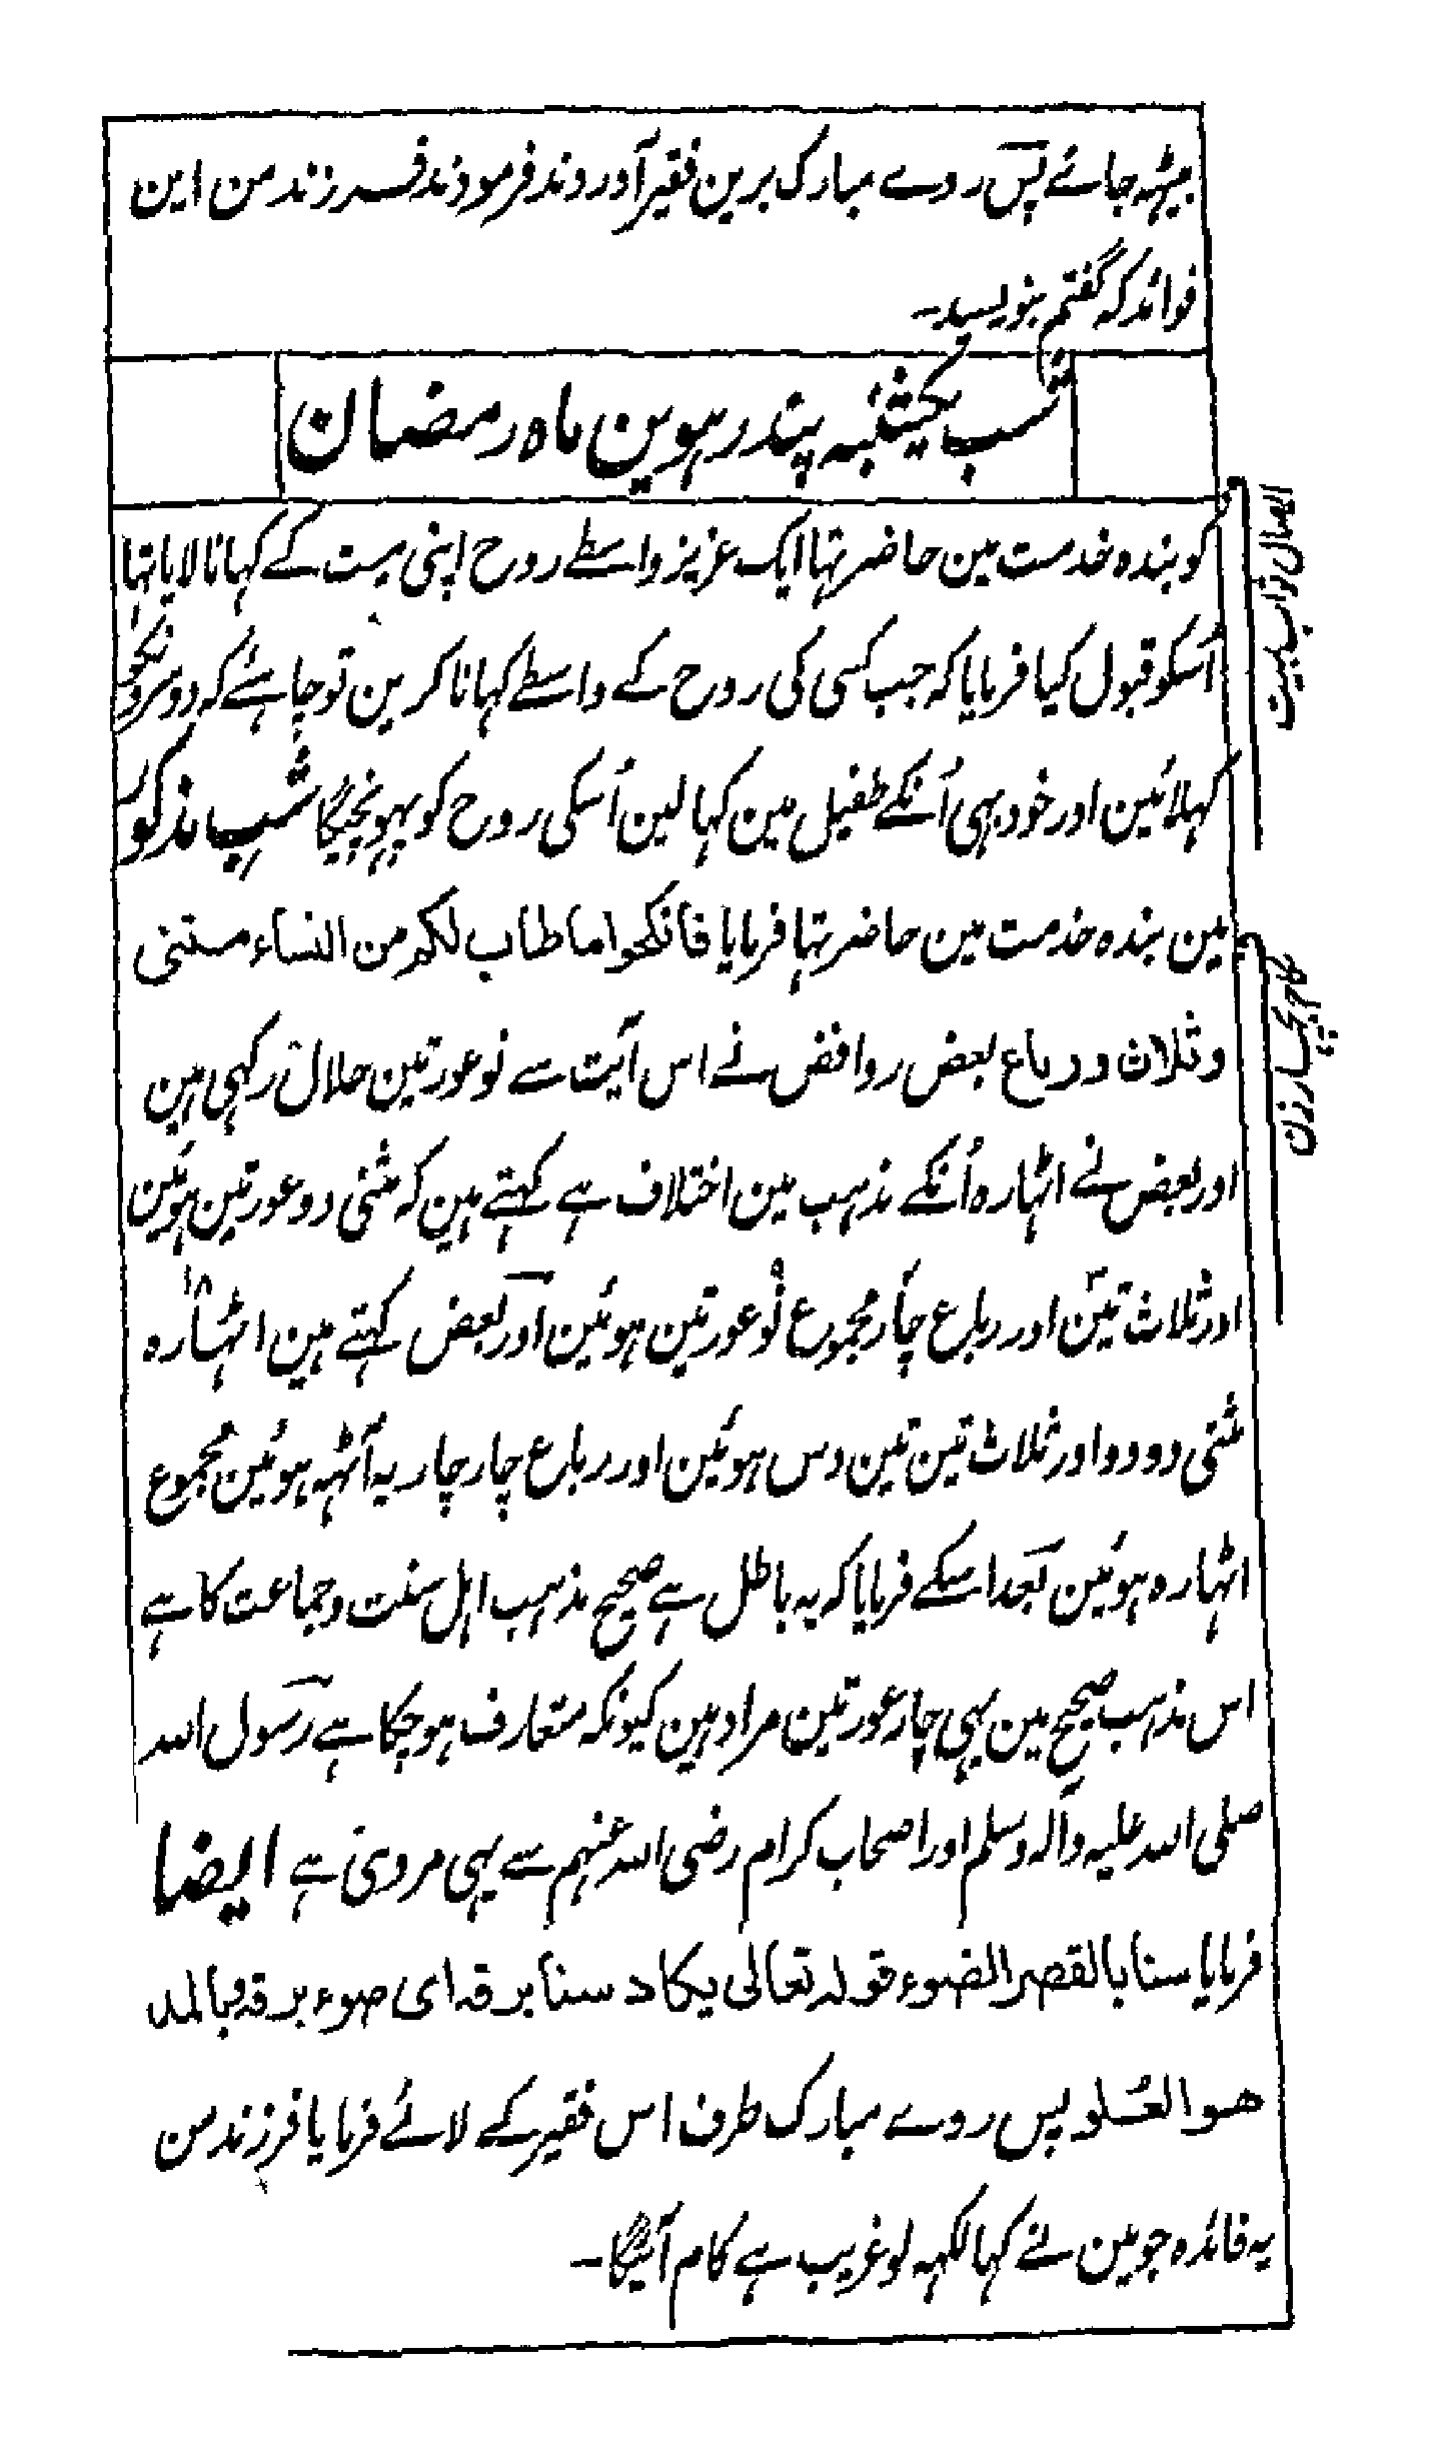 بیٹہہ جائے پس روے مبارک برین فقیر آوردند فرمودند فرزند من این
فوائد کہ گفتم بنویسید۔
شب یکشنبہ پندرہوین ماہ رمضان
کو بندہ خدمت مین حاضر تہا ایک عزیز واسطے روح اپنی میت کے کہانا لایا تہا
اُسکو قبول کیا فرمایا کہ جب کسی کی روح کے واسطے کہانا کرین تو چاہئے کہ دوسرونکو
کہلائین اور خود بہی اُنکے طفیل مین کہا لین اُسکی روح کو پہونچیگا شب مذکور
مین بندہ خدمت مین حاضر تہا فرمایا فانکحوا ما طاب لکم من النساء مثنی
وثلاث ورباع بعض روافض نے اس آیت سے نو عورتین حلال رکہی ہین
اور بعض نے اٹہارہ اُنکے مذہب مین اختلاف ہے کہتے ہین کہ مثنی دو عورتین ہوئین
اور ثلاث تین اور رباع چار مجموع نو عورتین ہوئین اور بعض کہتے ہین اٹہارہ
مثنی دو دو اور ثلاث تین تین دس ہوئین اور رباع چار چار یہ آٹہہ ہوئین مجموع
اٹہارہ ہوئین بعد اسکے فرمایا کہ یہ باطل ہے صحیح مذہب اہل سنت وجماعت کا ہے
اس مذہب صحیح مین یہی چار عورتین مراد ہین کیونکہ متعارف ہوچکا ہے رسول اللہ
صلی اللہ علیہ وآلہ وسلم اور اصحاب کرام رضی اللہ عنہم سے یہی مروی ہے ایضا
فرمایا سنا بالقصر الضوء قولہ تعالی یکاد سنا برقہ ای ضوء برقہ وبالمد
ھو العُلو پس روے مبارک طرف اس فقیر کے لائے فرمایا فرزند من
یہ فائدہ جو مین نے کہا لکہہ لو غریب ہے کام آئیگا۔
ایصال ثواب میت
نکاح چہار زن